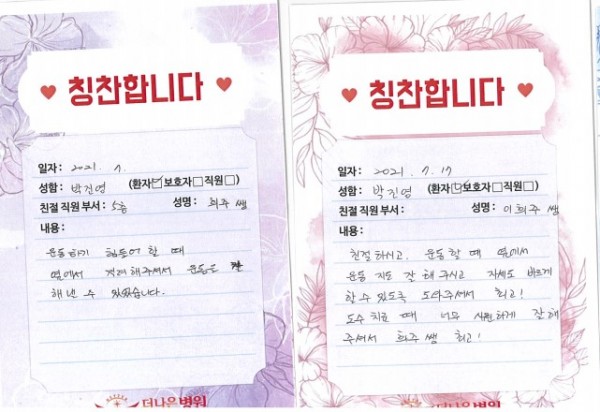 칭찬합니다
일자: 2021. 7.
성함: 박진영 (환자☑보호자☐직원☐)
친절 직원 부서: 5층 성명: 희주 쌤
내용:
운동하기 힘들어 할 때
옆에서 격려해주셔서 운동은 잘
해낼 수 있었습니다.
더나은병원
칭찬합니다
일자: 2021. 7. 17
성함: 박진영 (환자☑보호자☐직원☐)
친절 직원 부서: 성명: 이희주 쌤
내용:
친절하시고. 운동할 때 옆에서
운동 지도 잘 해주시고 자세도 바르게
할 수 있도록 도와주셔서 최고!
도수 치료 때 너무 시원하게 잘해
주셔서 희주쌤 최고!
더나은병원